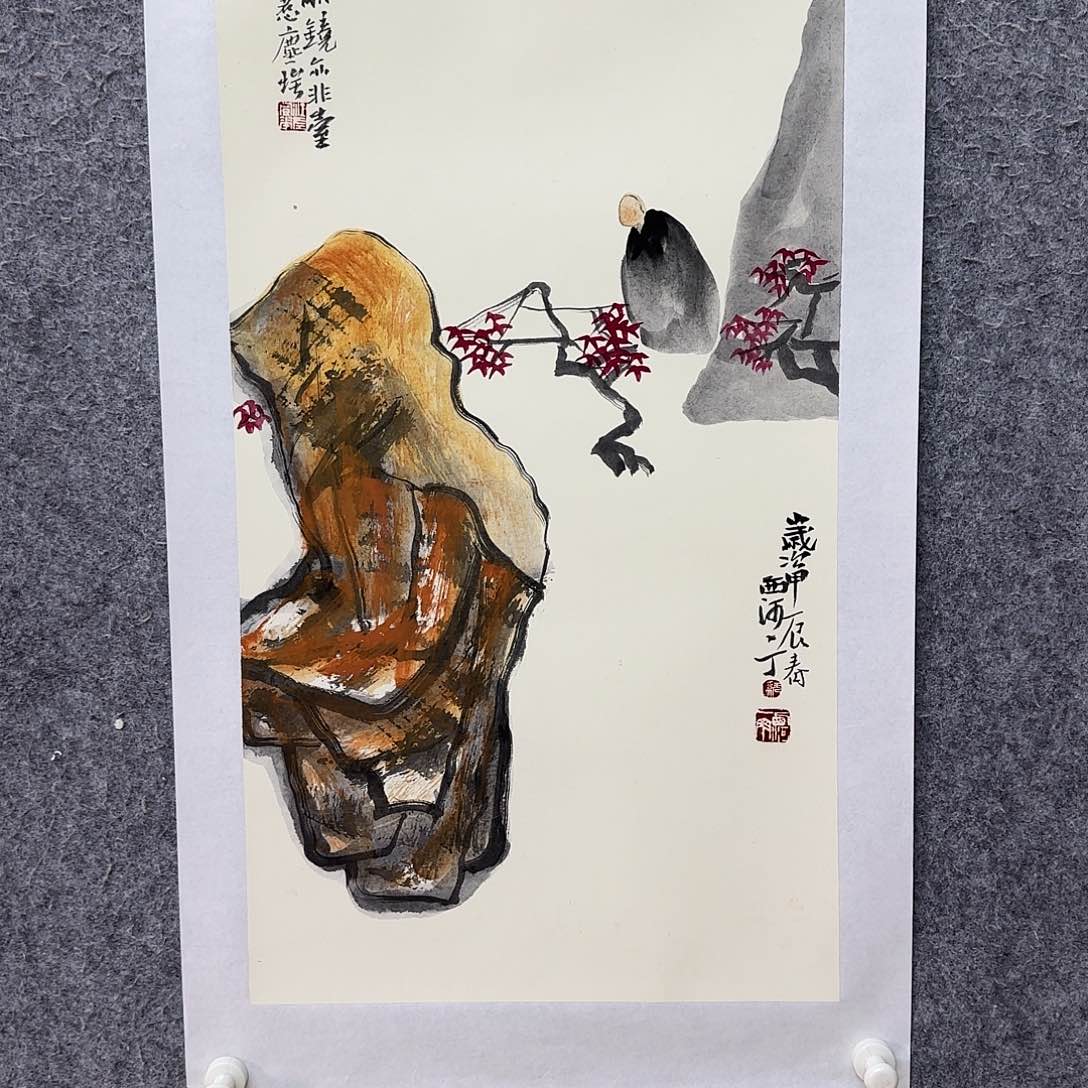 鏡亦非臺
惹塵埃
歲次甲辰春
西河丁